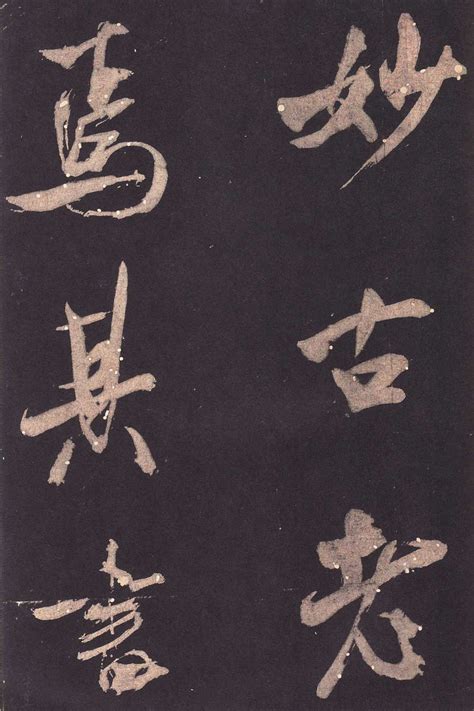 妙古老
焉其言